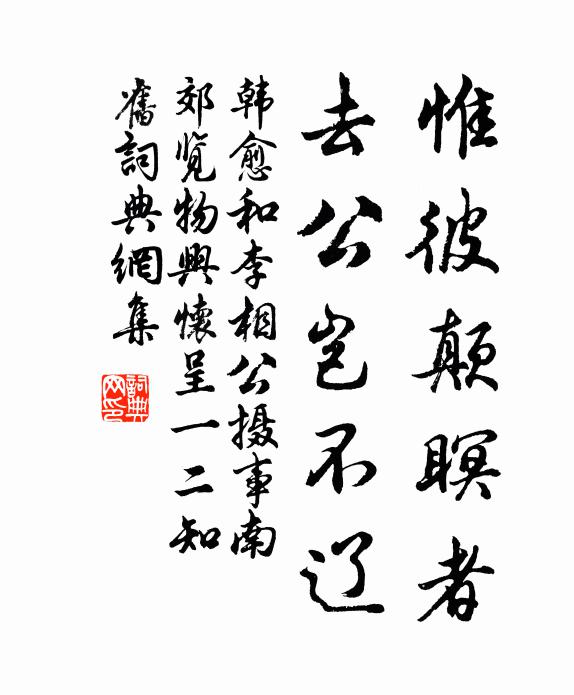 惟彼颠瞑者
去公岂不辽
韩愈和李相公摄事南
郊览物興懷呈一二知
舊詞典網集
詞典网印